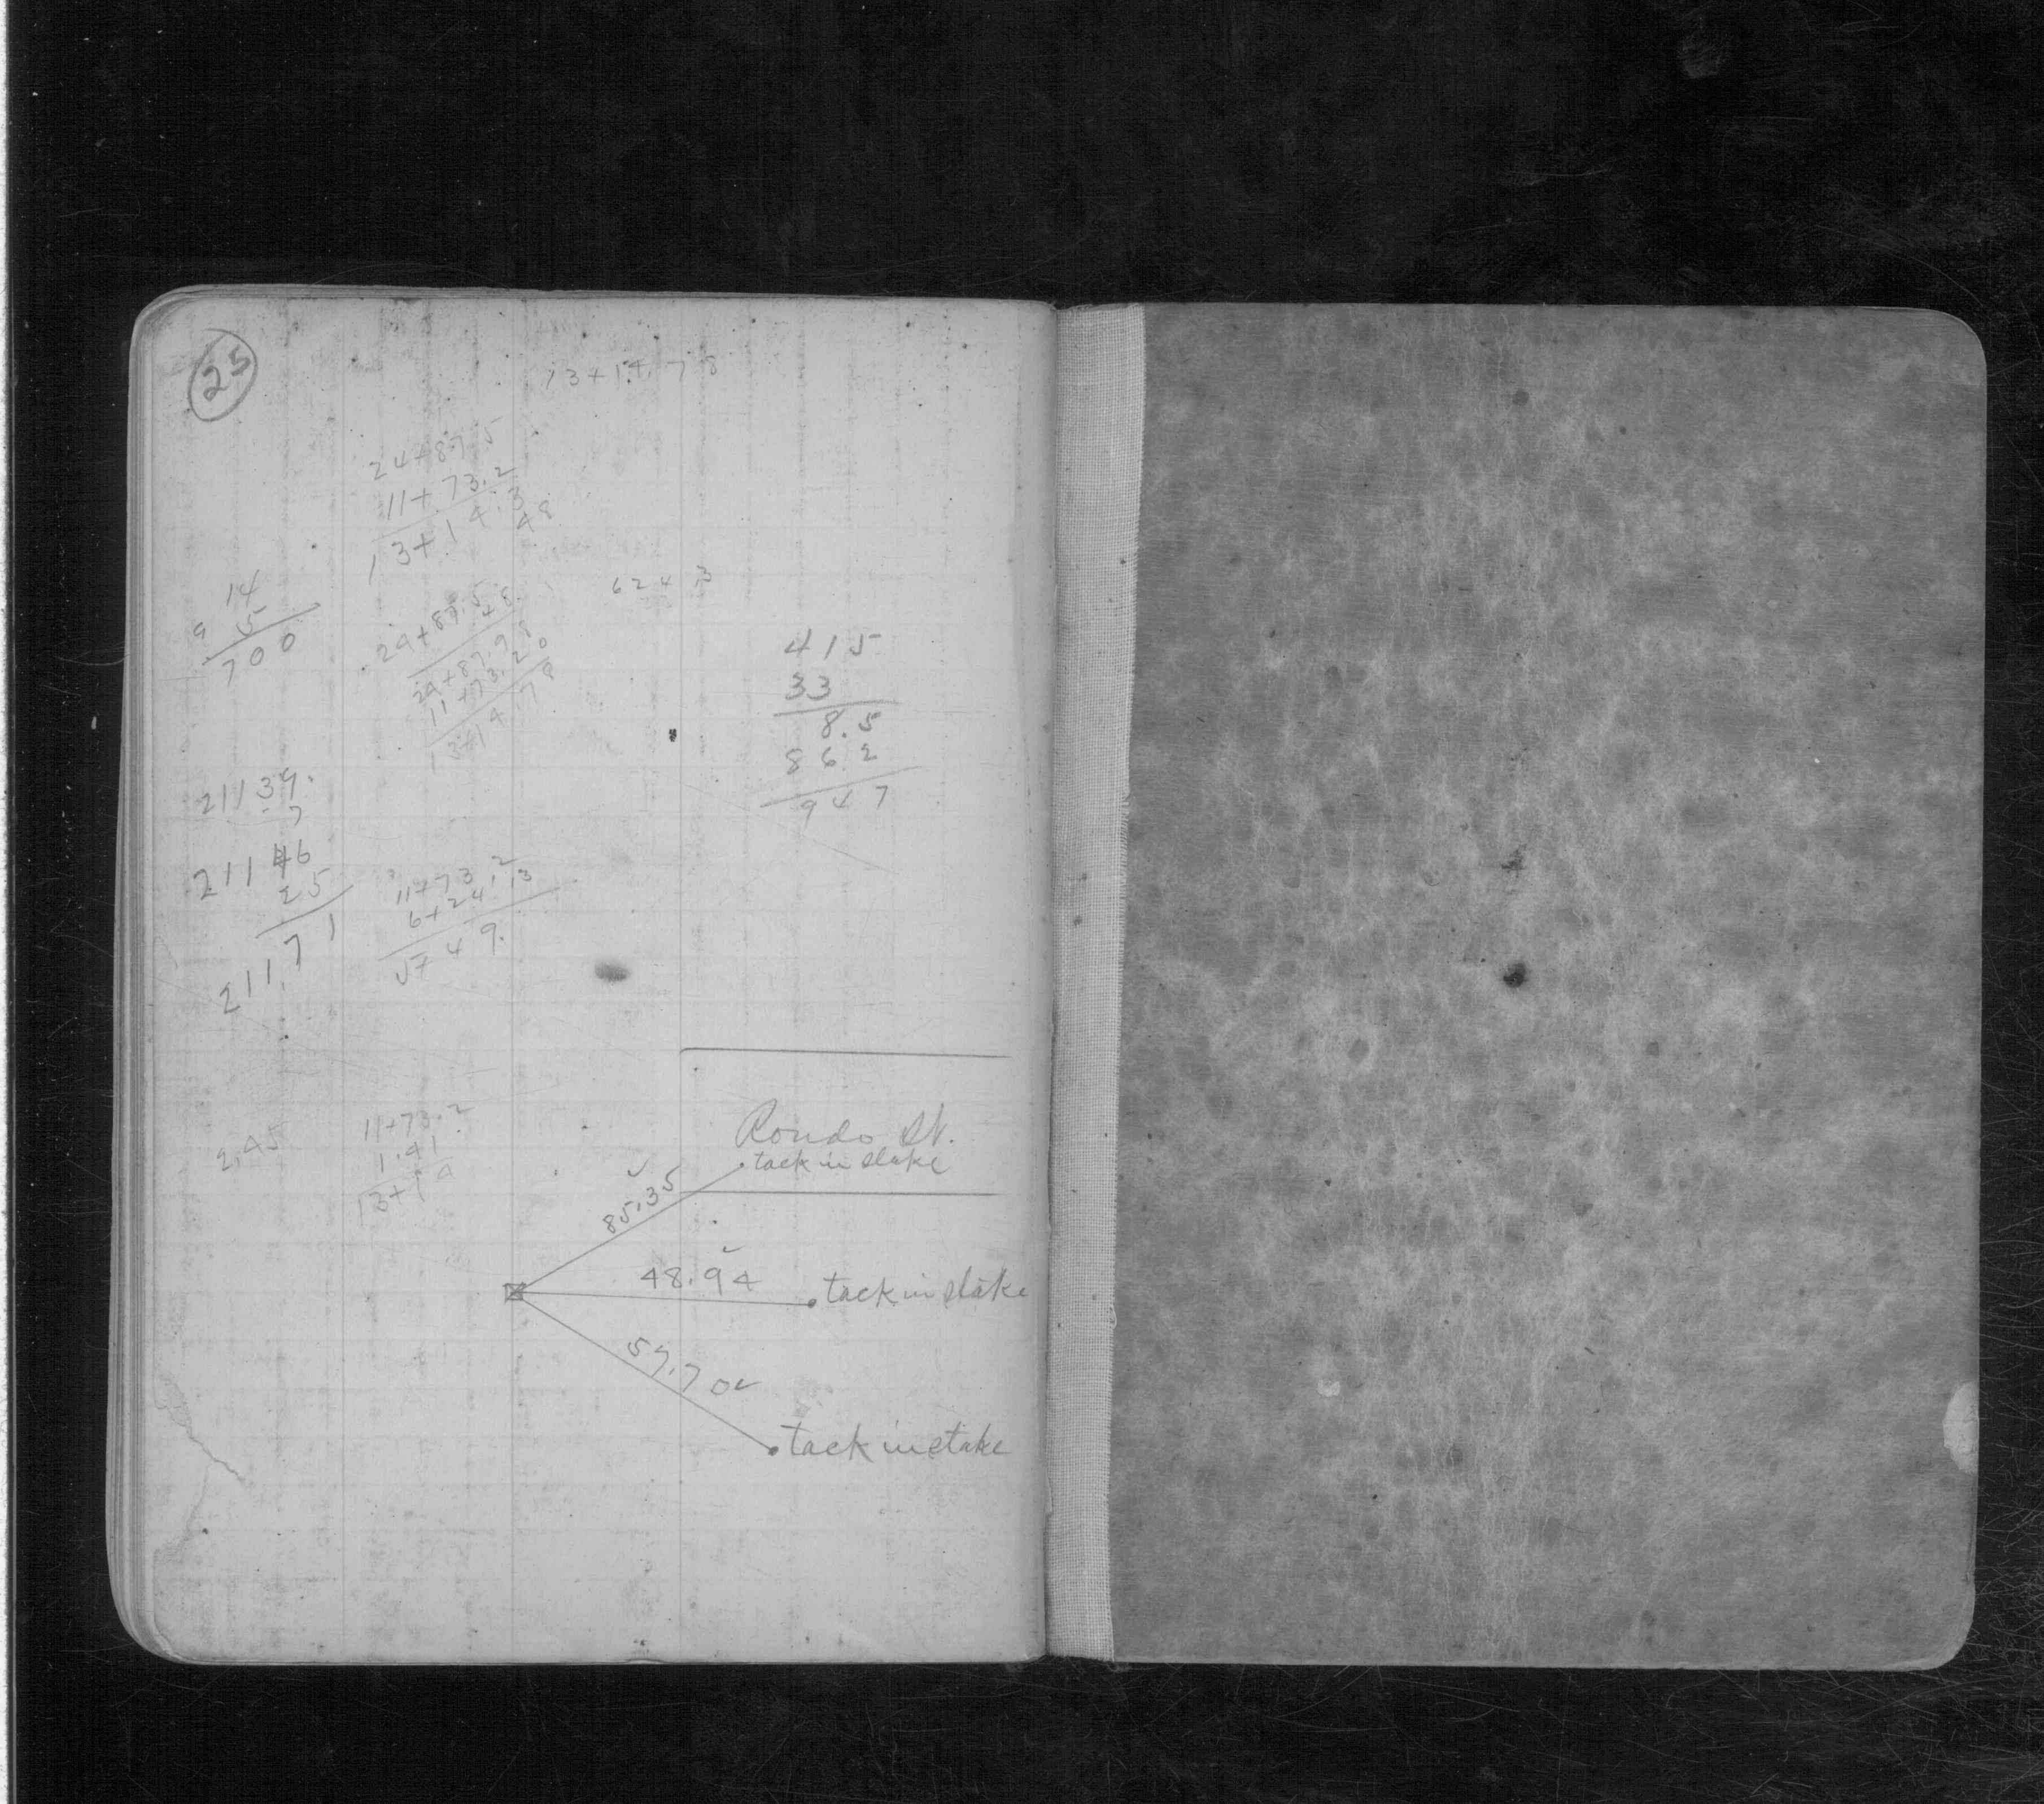 25
13+14.78
24+87.5
11+73.2
13+14.3
48
14
5
700
24+87.5
48
24+87.98
11+73.20
13+14.78
624.3
415
33
8.5
86.2
94.7
21139.
7
21146
25
211.71
11+73.2
6+24.13
549.
2.45
11+73.2
1.41
13+14
Rondo St.
tack in stake
85.35
48.94
tack in stake
57.70
tack in stake